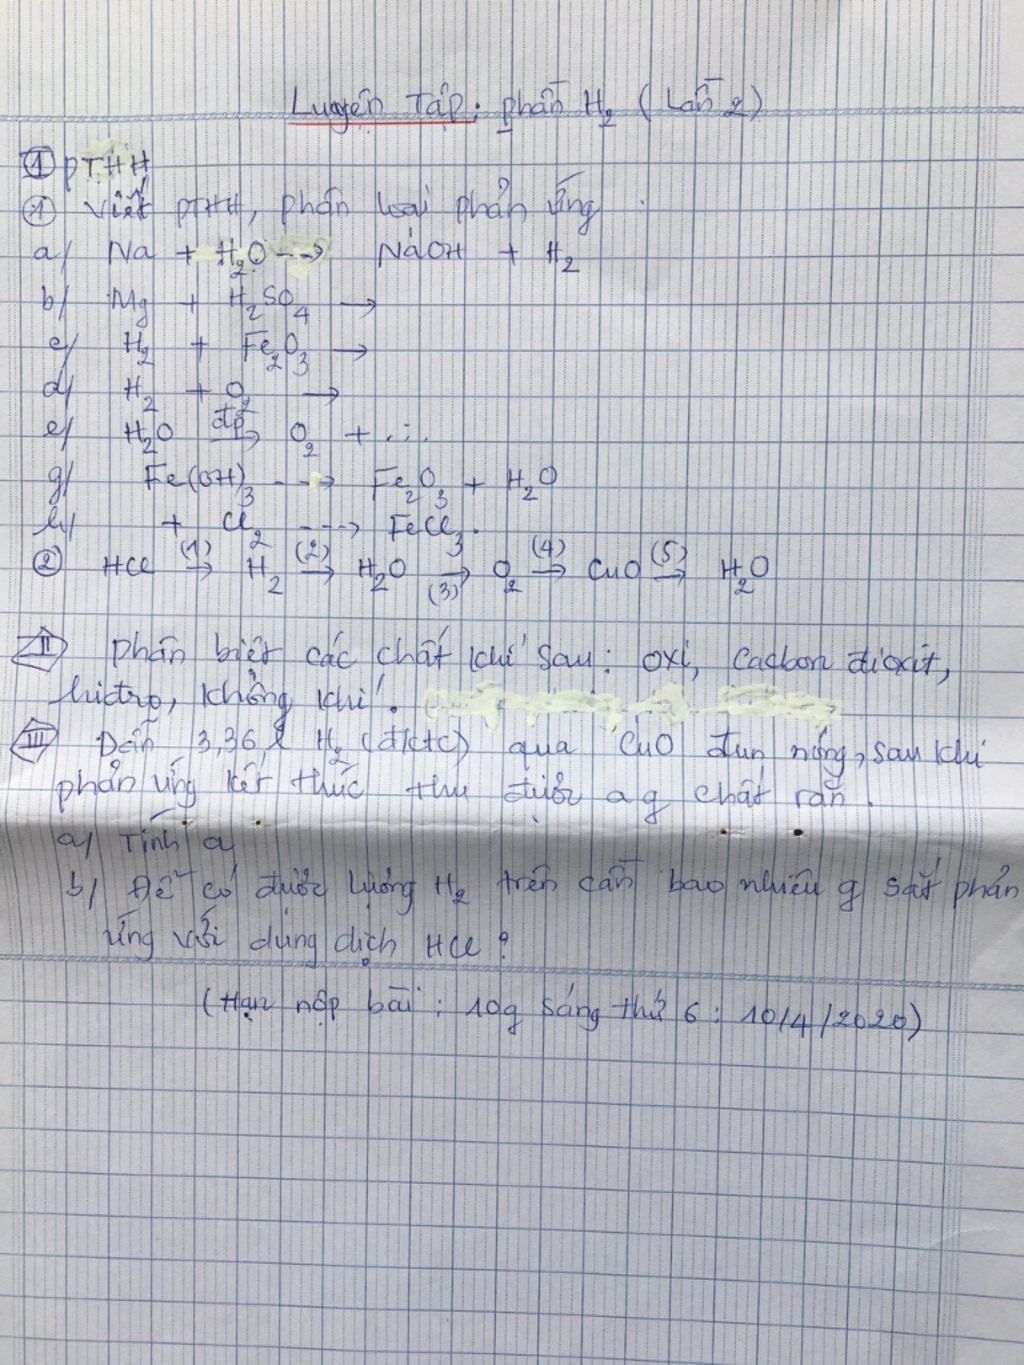 Luyện Tập: phần H₂ (Lần 2)
① PTHH
① Viết PTHH, phân loại phản ứng:
a/ Na + H₂O --→ NaOH + H₂
b/ Mg + H₂SO₄ →
c/ H₂ + Fe₂O₃ →
d/ H₂ + O₂ →
e/ H₂O đp→ O₂ + ...
g/ Fe(OH)₃ --→ Fe₂O₃ + H₂O
h/ + Cl₂ ---→ FeCl₃.
② HCl (1)→ H₂ (2)→ H₂O (3)→ O₂ (4)→ CuO (5)→ H₂O
II Phân biệt các chất khí sau: oxi, cacbon đioxit,
hiđro, không khí.
III Dẫn 3,36 l H₂ (đktc) qua CuO đun nóng, sau khi
phản ứng kết thúc thu được a g chất rắn.
a/ Tính a
b/ Để có được lượng H₂ trên cần bao nhiêu g sắt phản
ứng với dung dịch HCl?
(Hạn nộp bài: 10g sáng thứ 6: 10/4/2020)